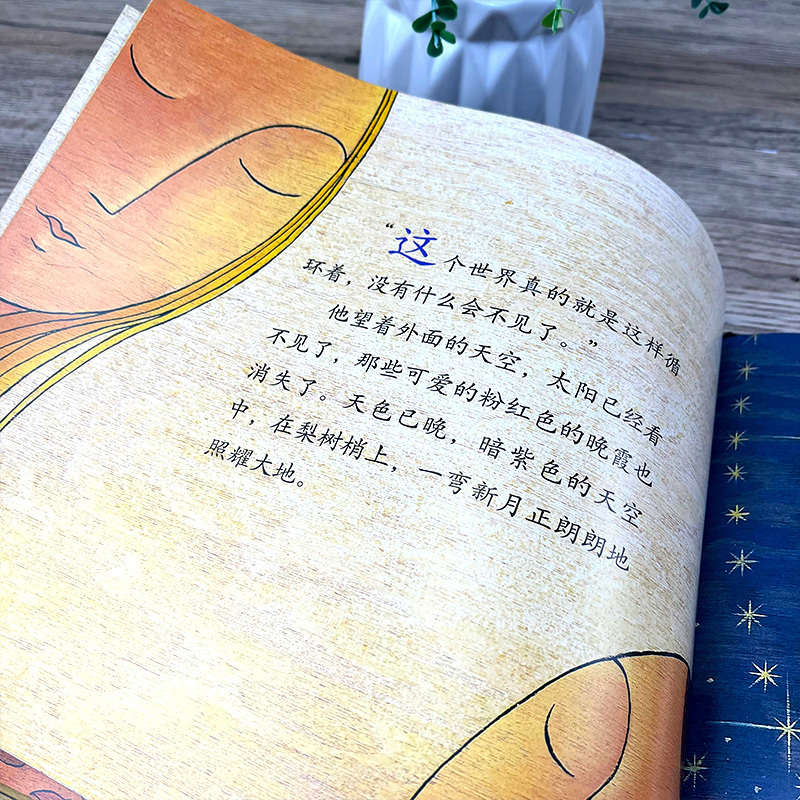 “这个世界真的就是这样循
环着，没有什么会不见了。”
他望着外面的天空，太阳已经看
不见了，那些可爱的粉红色的晚霞也
消失了。天色已晚，暗紫色的天空
中，在梨树梢上，一弯新月正朗朗地
照耀大地。